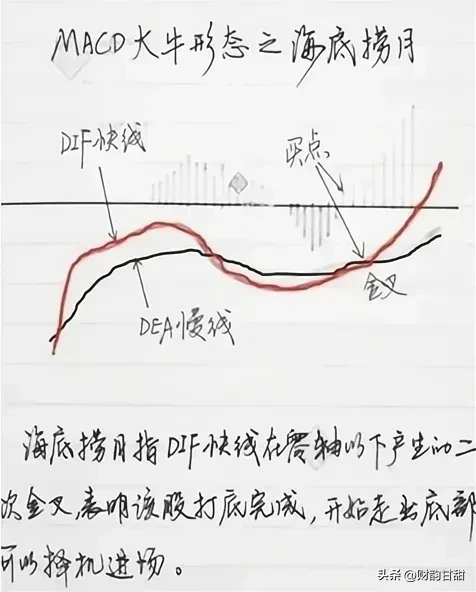 MACD大牛形态之海底捞月
DIF快线
买点
金叉
DEA慢线
海底捞月指DIF快线在零轴以下产生的二
次金叉,表明该股打底完成,开始走出底部
可以择机进场。
头条 @财韵甘甜